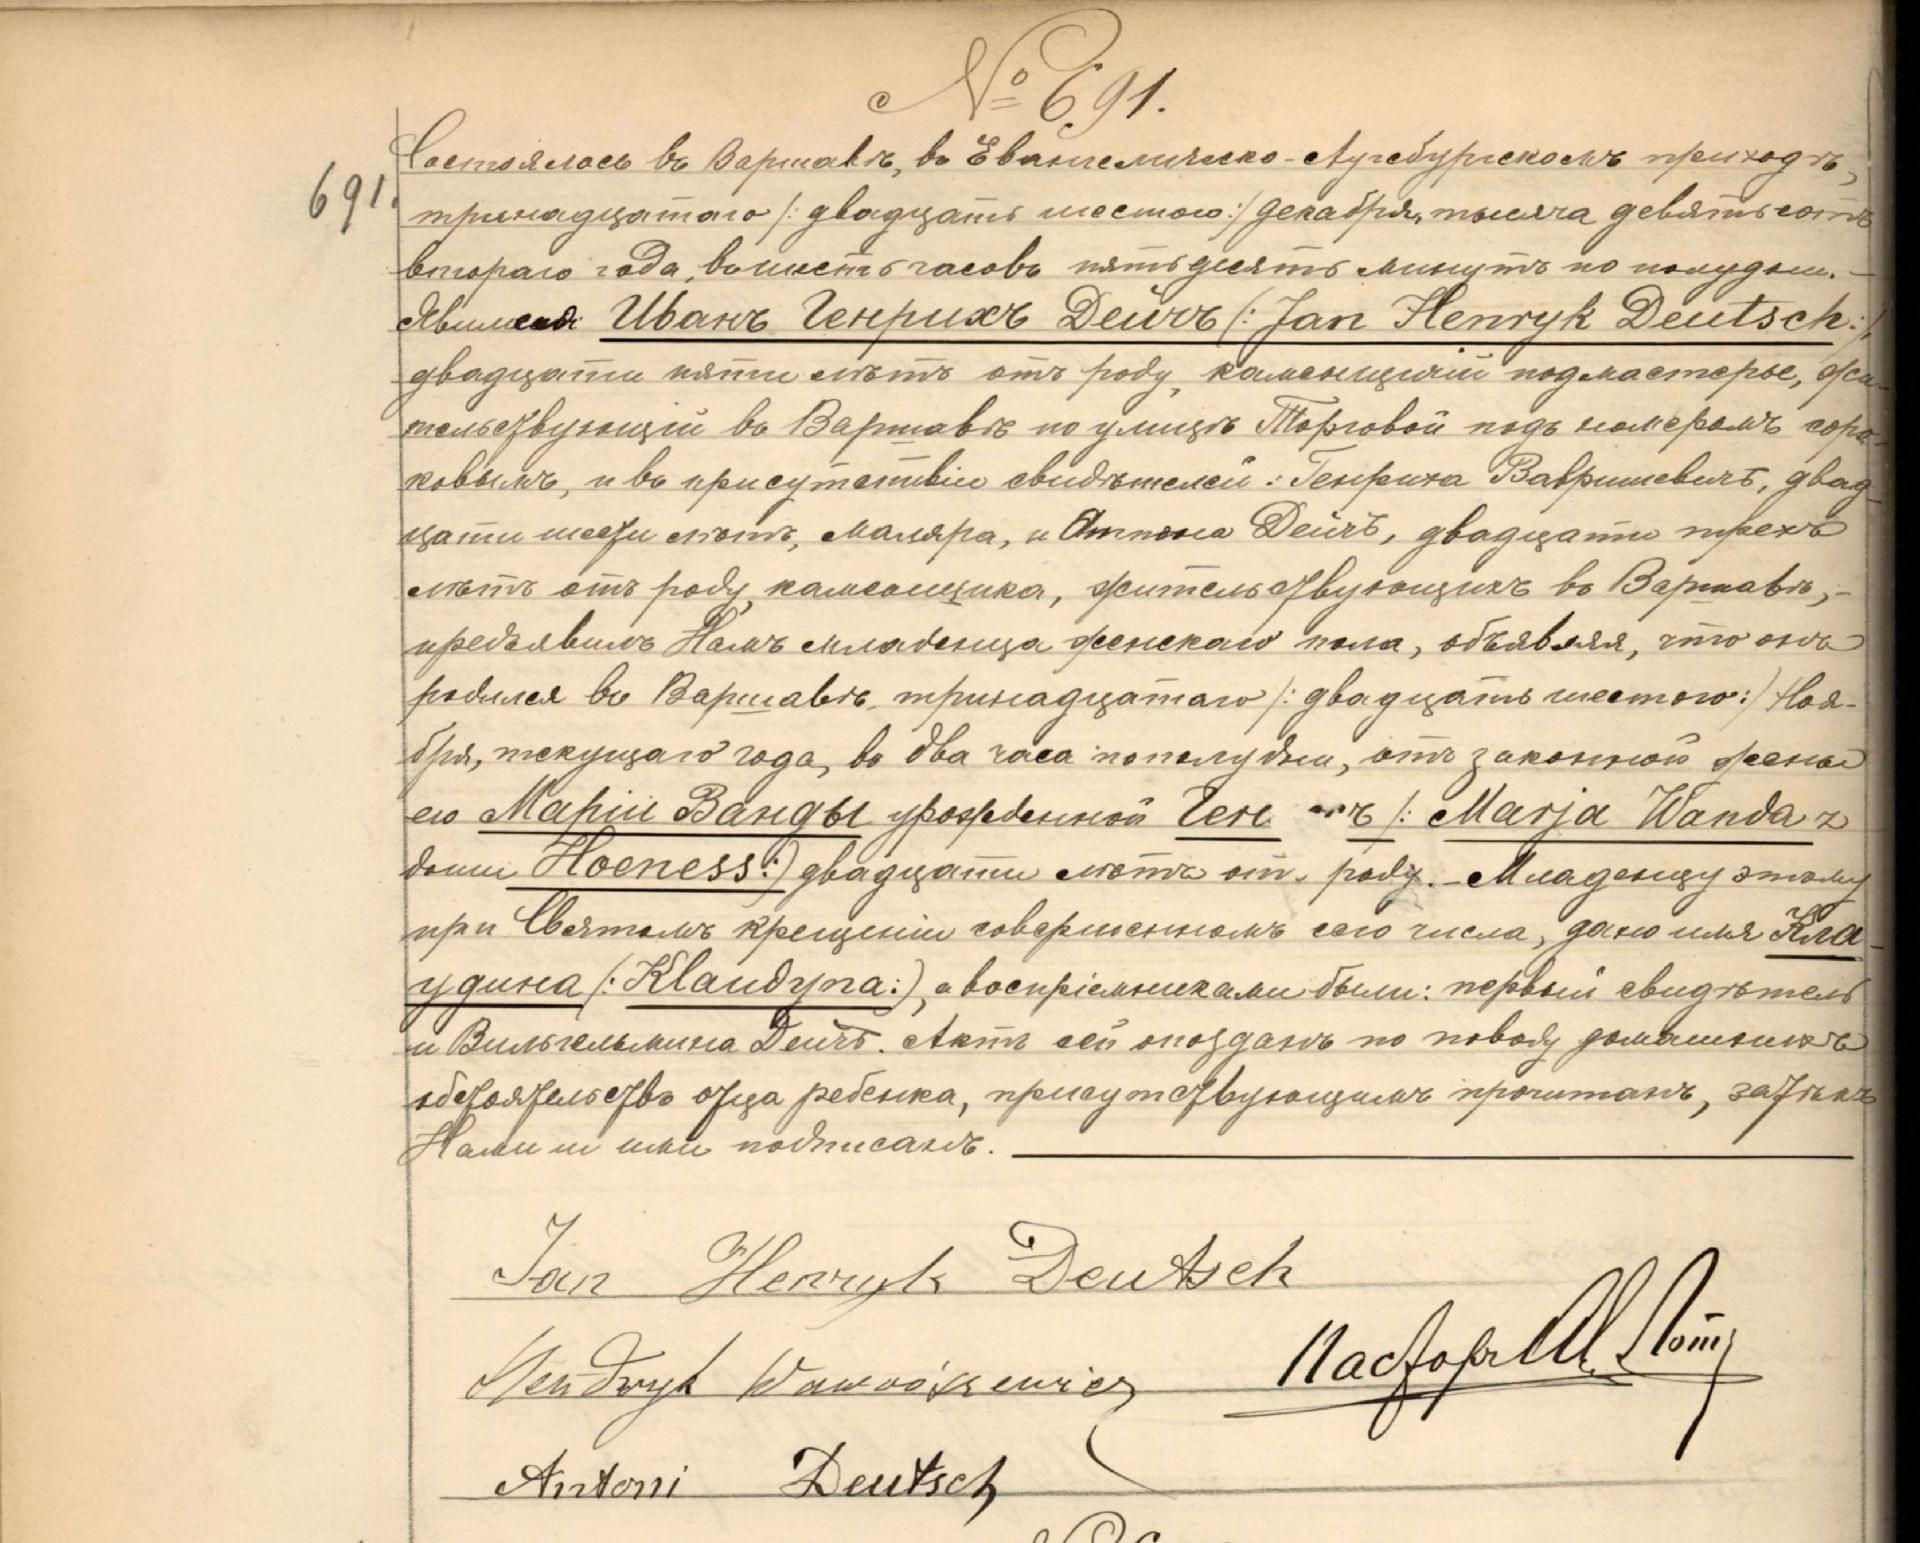 № 691.
Состоялось въ Варшавѣ, въ Евангелическо-Аугсбургскомъ приходѣ,
691.
тринадцатаго /: двадцать шестого :/ Декабря, тысяча девятьсотъ
второго года, въ шесть часовъ пятьдесятъ минутъ по полудни. —
Явился Иванъ Генрихъ Дейчъ (: Jan Henryk Deutsch :),
двадцати пяти лѣтъ отъ роду, каменщичій подмастерье, жи-
тельствующій въ Варшавѣ по улицѣ Торговой подъ номеромъ соро-
ковымъ, и въ присутствіи свидѣтелей: Генриха Вавришевичъ, двад-
цати шести лѣтъ, маляра, и Антона Дейчъ, двадцати трехъ
лѣтъ отъ роду, каменщика, жительствующихъ въ Варшавѣ, —
предъявилъ Намъ младенца женскаго пола, объявляя, что онъ
родился въ Варшавѣ, тринадцатаго /: двадцать шестого :/ Ноя-
бря, текущаго года, въ два часа пополудни, отъ законной жены
его Маріи Ванды урожденной Ген ъ /: Marja Wanda z
domu Hoeness :) двадцати лѣтъ отъ роду. — Младенцу этому
при Святомъ крещеніи совершенномъ сего числа, дано имя Кла-
удина (: Klaudyna :), а воспріемниками были: первый свидѣтель
и Вильгельмина Дейчъ. Актъ сей опозданъ по поводу домашнихъ
обстоятельствъ отца ребенка, присутствующимъ прочитанъ, затѣмъ
Нами и ими подписанъ.
Jan Henryk Deutsch
Пасторъ
Antoni Deutsch